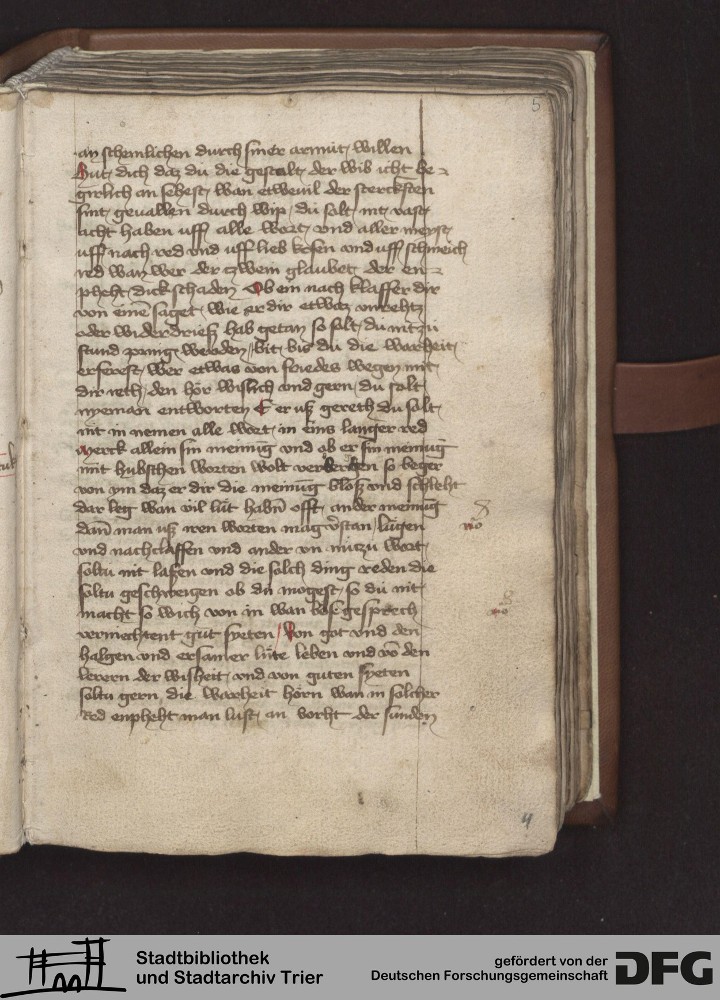 5
an schemlichen durch siner armut willen
Hut dich daz du die gestalt der wib icht be=
girlich an sehest wan etwevil der stercksten
sint gevallen durch wip du solt nit vast
acht haben uff alle wort und aller meyst
uff nach red und uff lieb kosen und uff schmeich
red wan wer der zwein glaubet der en=
pheht dick schaden Ob ein nach klaffer dir
von eine saget wie er dir etwaz unrehtz
oder widerdriesz hab getan so solt du nit zu
stund zornig werden bit bis du die warheit
erferest wer etwas von frides wegen mit
dir reth den hör wislich und gern du solt
nyeman entworten E er usz gereth du solt
nit in nemen alle wort in eins langer red
Merck allein sin meinug und ob er sin meinug
mit hubschen worten wolt verderben so beger
von ym daz er dir die meinug blosz und schleht
dar leg wan vil lüt habn offt ander meinug
dan man usz iren worten mag vstan lugen
und nachclaffen und ander un nüczu wort
soltu nit laszen und die solch ding reden die
soltu geschweigen ob du mogest so du nit
macht so wich von in wan bose gesprech
vermechtent gut syeten Von got und den
halgen und ersamer lüte leben und vo den
lerern der wisheit und von guten syeten
soltu gern die warheit hörn wan in solcher
red enpheht man lust an vorht der sunden
4
Stadtbibliothek
und Stadtarchiv Trier
gefördert von der
Deutschen Forschungsgemeinschaft
DFG